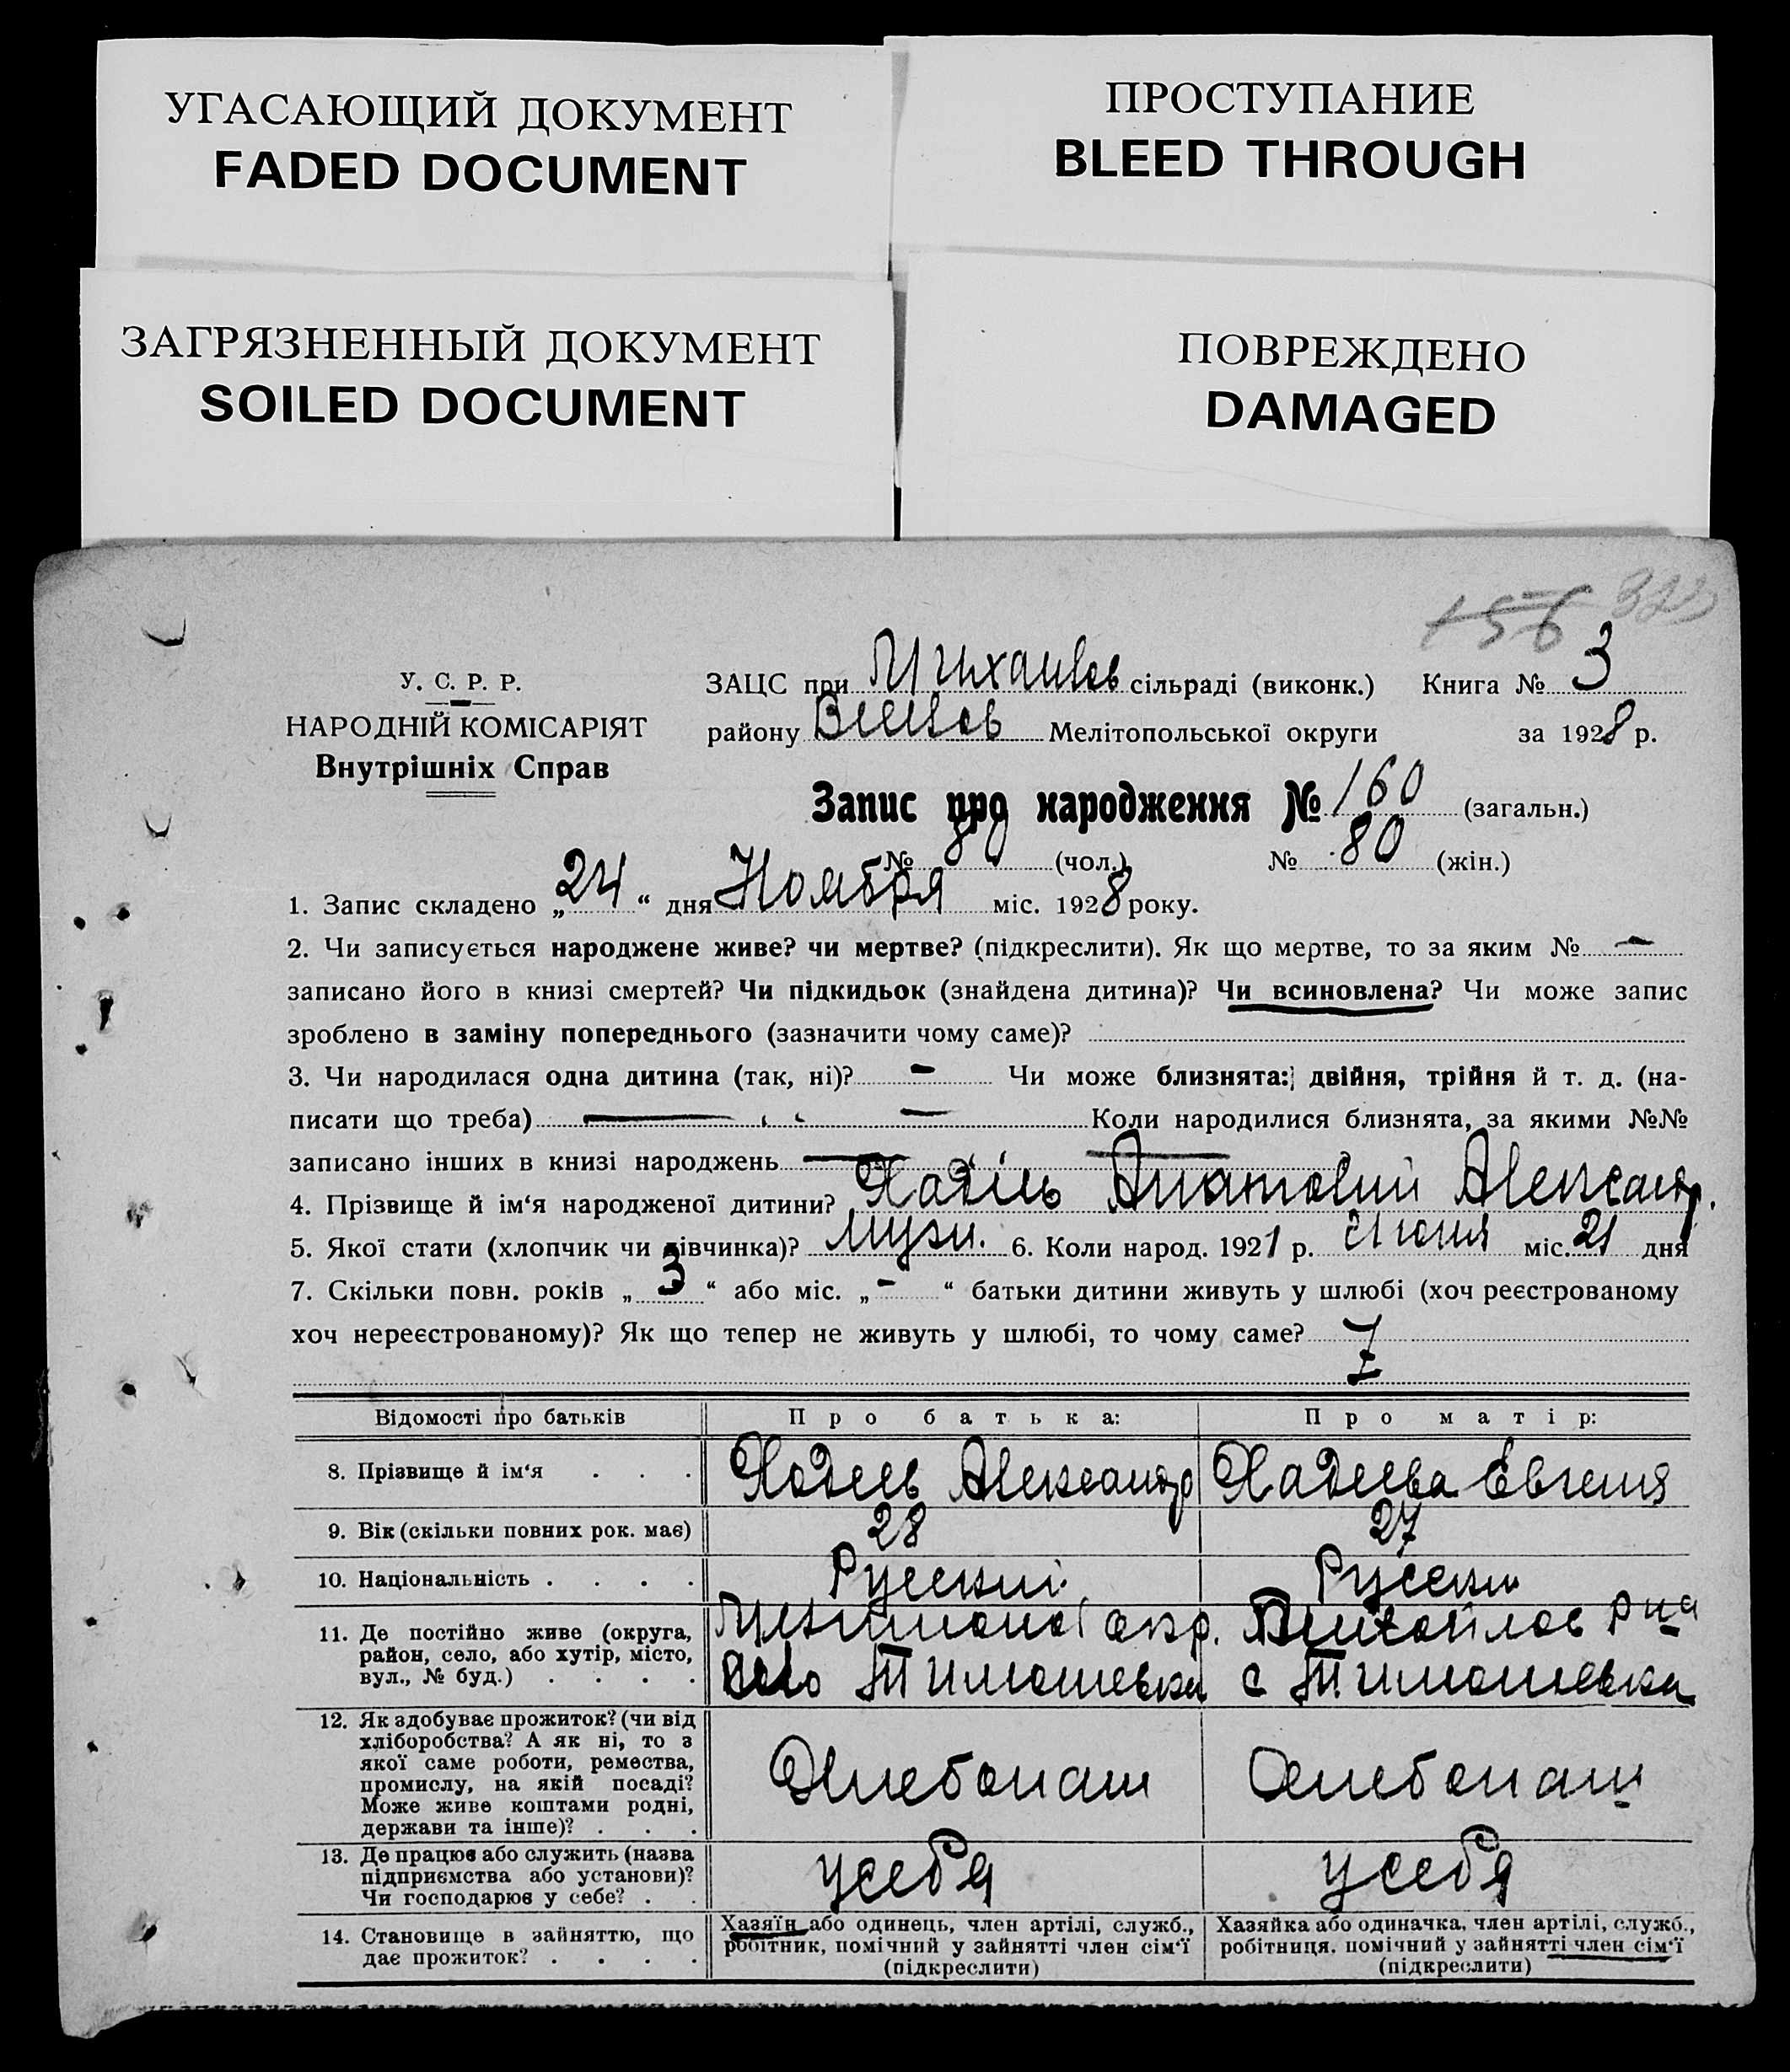 УГАСАЮЩИЙ ДОКУМЕНТ
FADED DOCUMENT
ПРОСТУПАНИЕ
BLEED THROUGH
ЗАГРЯЗНЕННЫЙ ДОКУМЕНТ
SOILED DOCUMENT
ПОВРЕЖДЕНО
DAMAGED
156 323
У. С. Р. Р.
НАРОДНІЙ КОМІСАРІЯТ
Внутрішніх Справ
ЗАЦС при Михайлов сільраді (виконк.) Книга № 3
району Мелітопольської округи за 1928 р.
Запис про народження № 160 (загальн.)
№ 80 (чол.) № 80 (жін.)
1. Запис складено „24“ дня Ноября міс. 1928 року.
2. Чи записується народжене живе? чи мертве? (підкреслити). Як що мертве, то за яким № —
записано його в книзі смертей? Чи підкидьок (знайдена дитина)? Чи всиновлена? Чи може запис
зроблено в заміну попереднього (зазначити чому саме)?
3. Чи народилася одна дитина (так, ні)? — Чи може близнята: двійня, трійня й т. д. (на-
писати що треба) — — Коли народилися близнята, за якими №№
записано інших в книзі народжень — —
4. Прізвище й ім‘я народженої дитини? Анатолий Александр.
5. Якої стати (хлопчик чи дівчинка)? Мужч. 6. Коли народ. 1921 р. Июня міс. 21 дня
7. Скільки повн. років „3“ або міс. „-“ батьки дитини живуть у шлюбі (хоч реєстрованому
хоч нереєстрованому)? Як що тепер не живуть у шлюбі, то чому саме?
Відомості про батьків Про батька: Про матір:
8. Прізвище й ім‘я . . . Хадеев Александр Хадеева Евгения
9. Вік (скільки повних рок. має) 28 27
10. Національність . . . . Русский Русски
11. Де постійно живе (округа,
район, село, або хутір, місто,
вул., № буд.) . . . .
окр. Михайлов рна
село Тимошевка с Тимошевка
12. Як здобуває прожиток? (чи від
хліборобства? А як ні, то з
якої саме роботи, ремества,
промислу, на якій посаді?
Може живе коштами родні,
держави та інше)? . . .
Хлебопаш Хлебопаш
13. Де працює або служить (назва
підприємства або установи)?
Чи господарює у себе? . .
у себя у себя
14. Становище в зайняттю, що
дає прожиток? . . . .
Хазяїн або одинець, член артілі, служб.,
робітник, помічний у зайнятті член сім‘ї
(підкреслити)
Хазяйка або одиначка, член артілі, служб.,
робітниця, помічний у зайнятті член сім‘ї
(підкреслити)